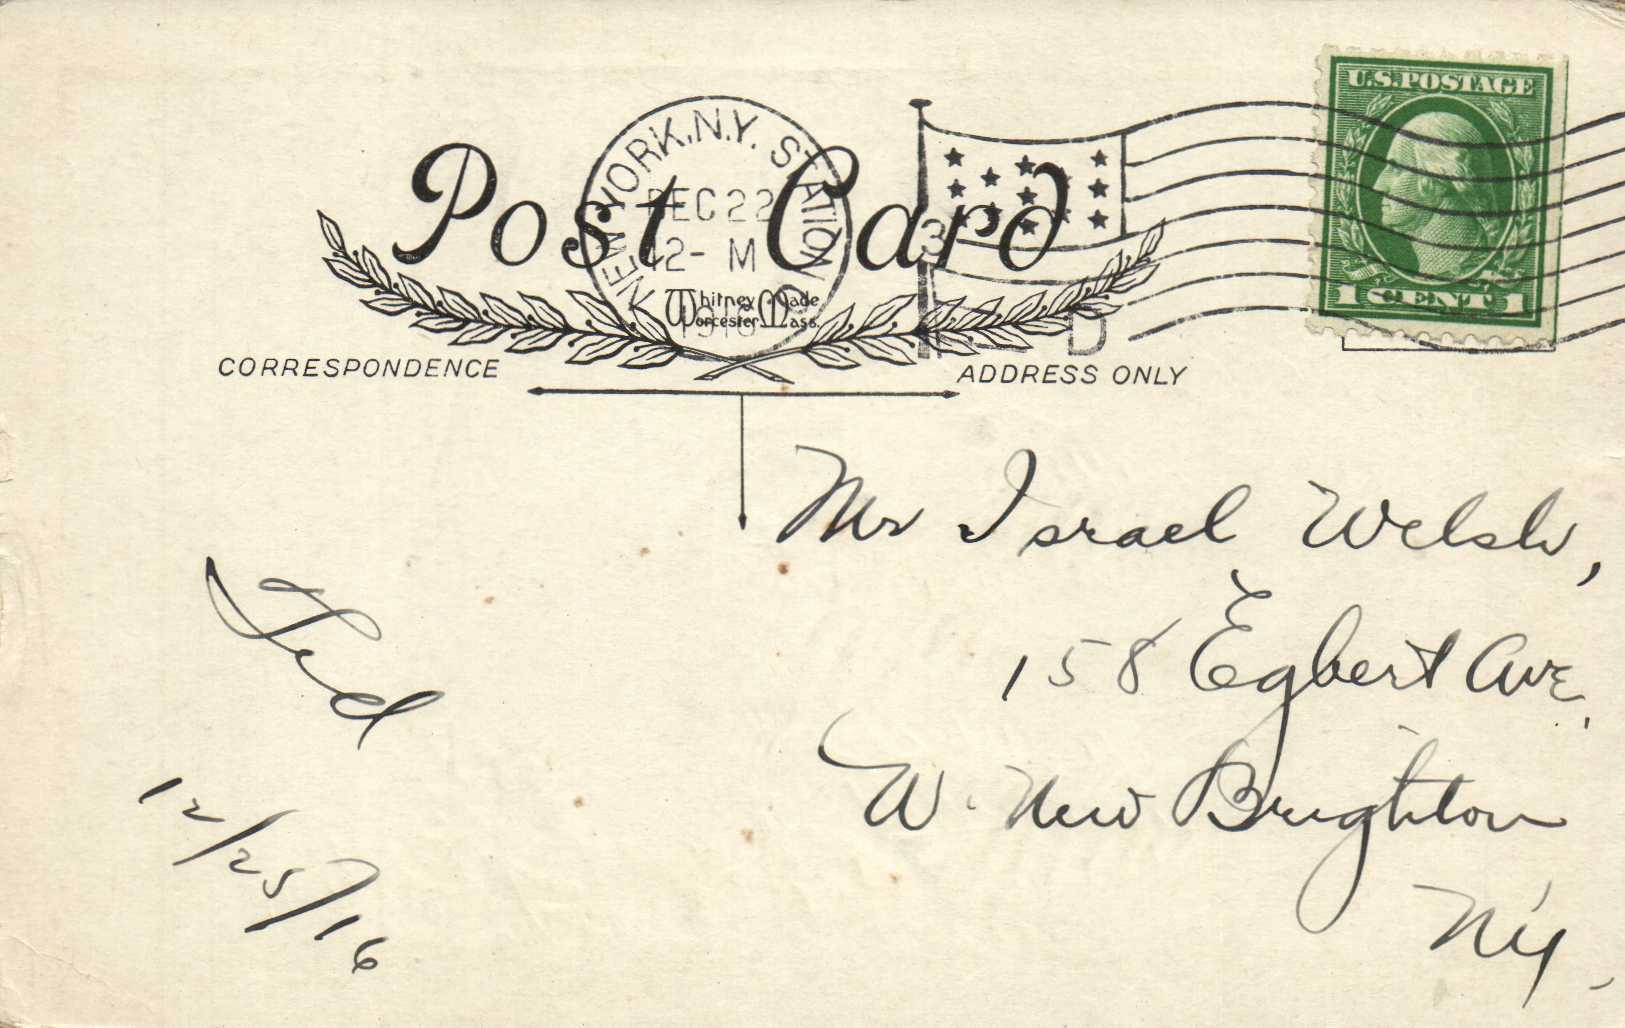 U.S. POSTAGE
1 CENT 1
NEW YORK, N.Y. STATION D
DEC 22
12- M
1916
3
D
Post Card
Whitney Made
Worcester, Mass.
CORRESPONDENCE
ADDRESS ONLY
Mr Israel Welsh,
158 Egbert Ave,
W. New Brighton
N.Y.
Ted
12/25/16